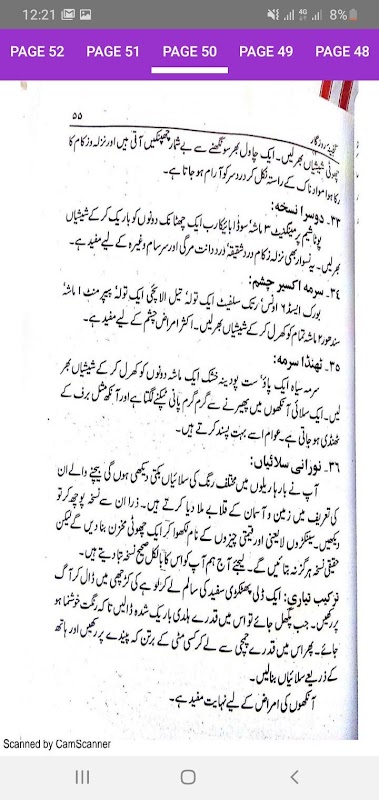 12:21 4G 8%
PAGE 52 PAGE 51 PAGE 50 PAGE 49 PAGE 48
۵۵
گنجینہ روزگار
چھوٹی شیشیاں بھر لیں۔ ایک چاول بھر سونگھنے سے بے شمار چھینکیں آتی ہیں اور نزلہ و زکام کا
رکا ہوا مواد ناک کے راستہ نکل کر درد سر کو آرام ہو جاتا ہے۔
۳۳۔ دوسرا نسخہ:
پوٹاشیم پرمینگنیٹ ۳ ماشہ سوڈا بائیکارب ایک چھٹانک دونوں کو باریک کر کے شیشیاں
بھر لیں۔ یہ نسوار بھی نزلہ زکام درد شقیقہ درد دانت مرگی اور سرسام وغیرہ کے لیے مفید ہے۔
۳۴۔ سرمہ اکسیر چشم:
بورک ایسڈ ۶ اونس زنک سلفیٹ ایک تولہ تیل الائچی ایک تولہ پیپرمنٹ ۱ ماشہ
سندھور ۲ ماشہ تمام کو کھرل کر کے شیشیاں بھر لیں۔ اکثر امراض چشم کے لیے مفید ہے۔
۳۵۔ ٹھنڈا سرمہ:
سرمہ سیاہ ایک پاؤ ست پودینہ خشک ایک ماشہ دونوں کو کھرل کر کے شیشیاں بھر
لیں۔ ایک سلائی آنکھوں میں پھیرنے سے گرم گرم پانی ٹپکنے لگتا ہے اور آنکھ مثل برف کے
ٹھنڈی ہو جاتی ہے۔ عوام اسے بہت پسند کرتے ہیں۔
۳۶۔ نورانی سلائیاں:
آپ نے بارہا ریلوں میں مختلف رنگ کی سلائیاں بکتی دیکھی ہوں گی بیچنے والے ان
کی تعریف میں زمین و آسمان کے قلابے ملا دیا کرتے ہیں۔ ذرا ان سے نسخہ پوچھ کر تو
دیکھیں۔ سینکڑوں لایعنی اور قیمتی چیزوں کے نام لکھوا کر ایک چھوٹی مخزن بنا دیں گے لیکن
حقیقی نسخہ ہرگز نہ بتائیں گے۔ لیجئے آج ہم آپ کو اس کا بالکل صحیح نسخہ بتا دیتے ہیں۔
ترکیب تیاری: ایک ڈلی پھٹکڑی سفید کی سالم لے کر لوہے کی کڑچھی میں ڈال کر آگ
پر رکھیں۔ جب پگھل جائے تو اس میں قدرے ہلدی باریک شدہ ڈالیں تا کہ رنگ خوشنما ہو
جائے۔ پھر اس میں قدرے چمچی سے لے کر کسی مٹی کے برتن کے پیندے پر رکھیں اور ہاتھ
کے ذریعے سلائیاں بنالیں۔
آنکھوں کی امراض کے لیے نہایت مفید ہے۔
Scanned by CamScanner